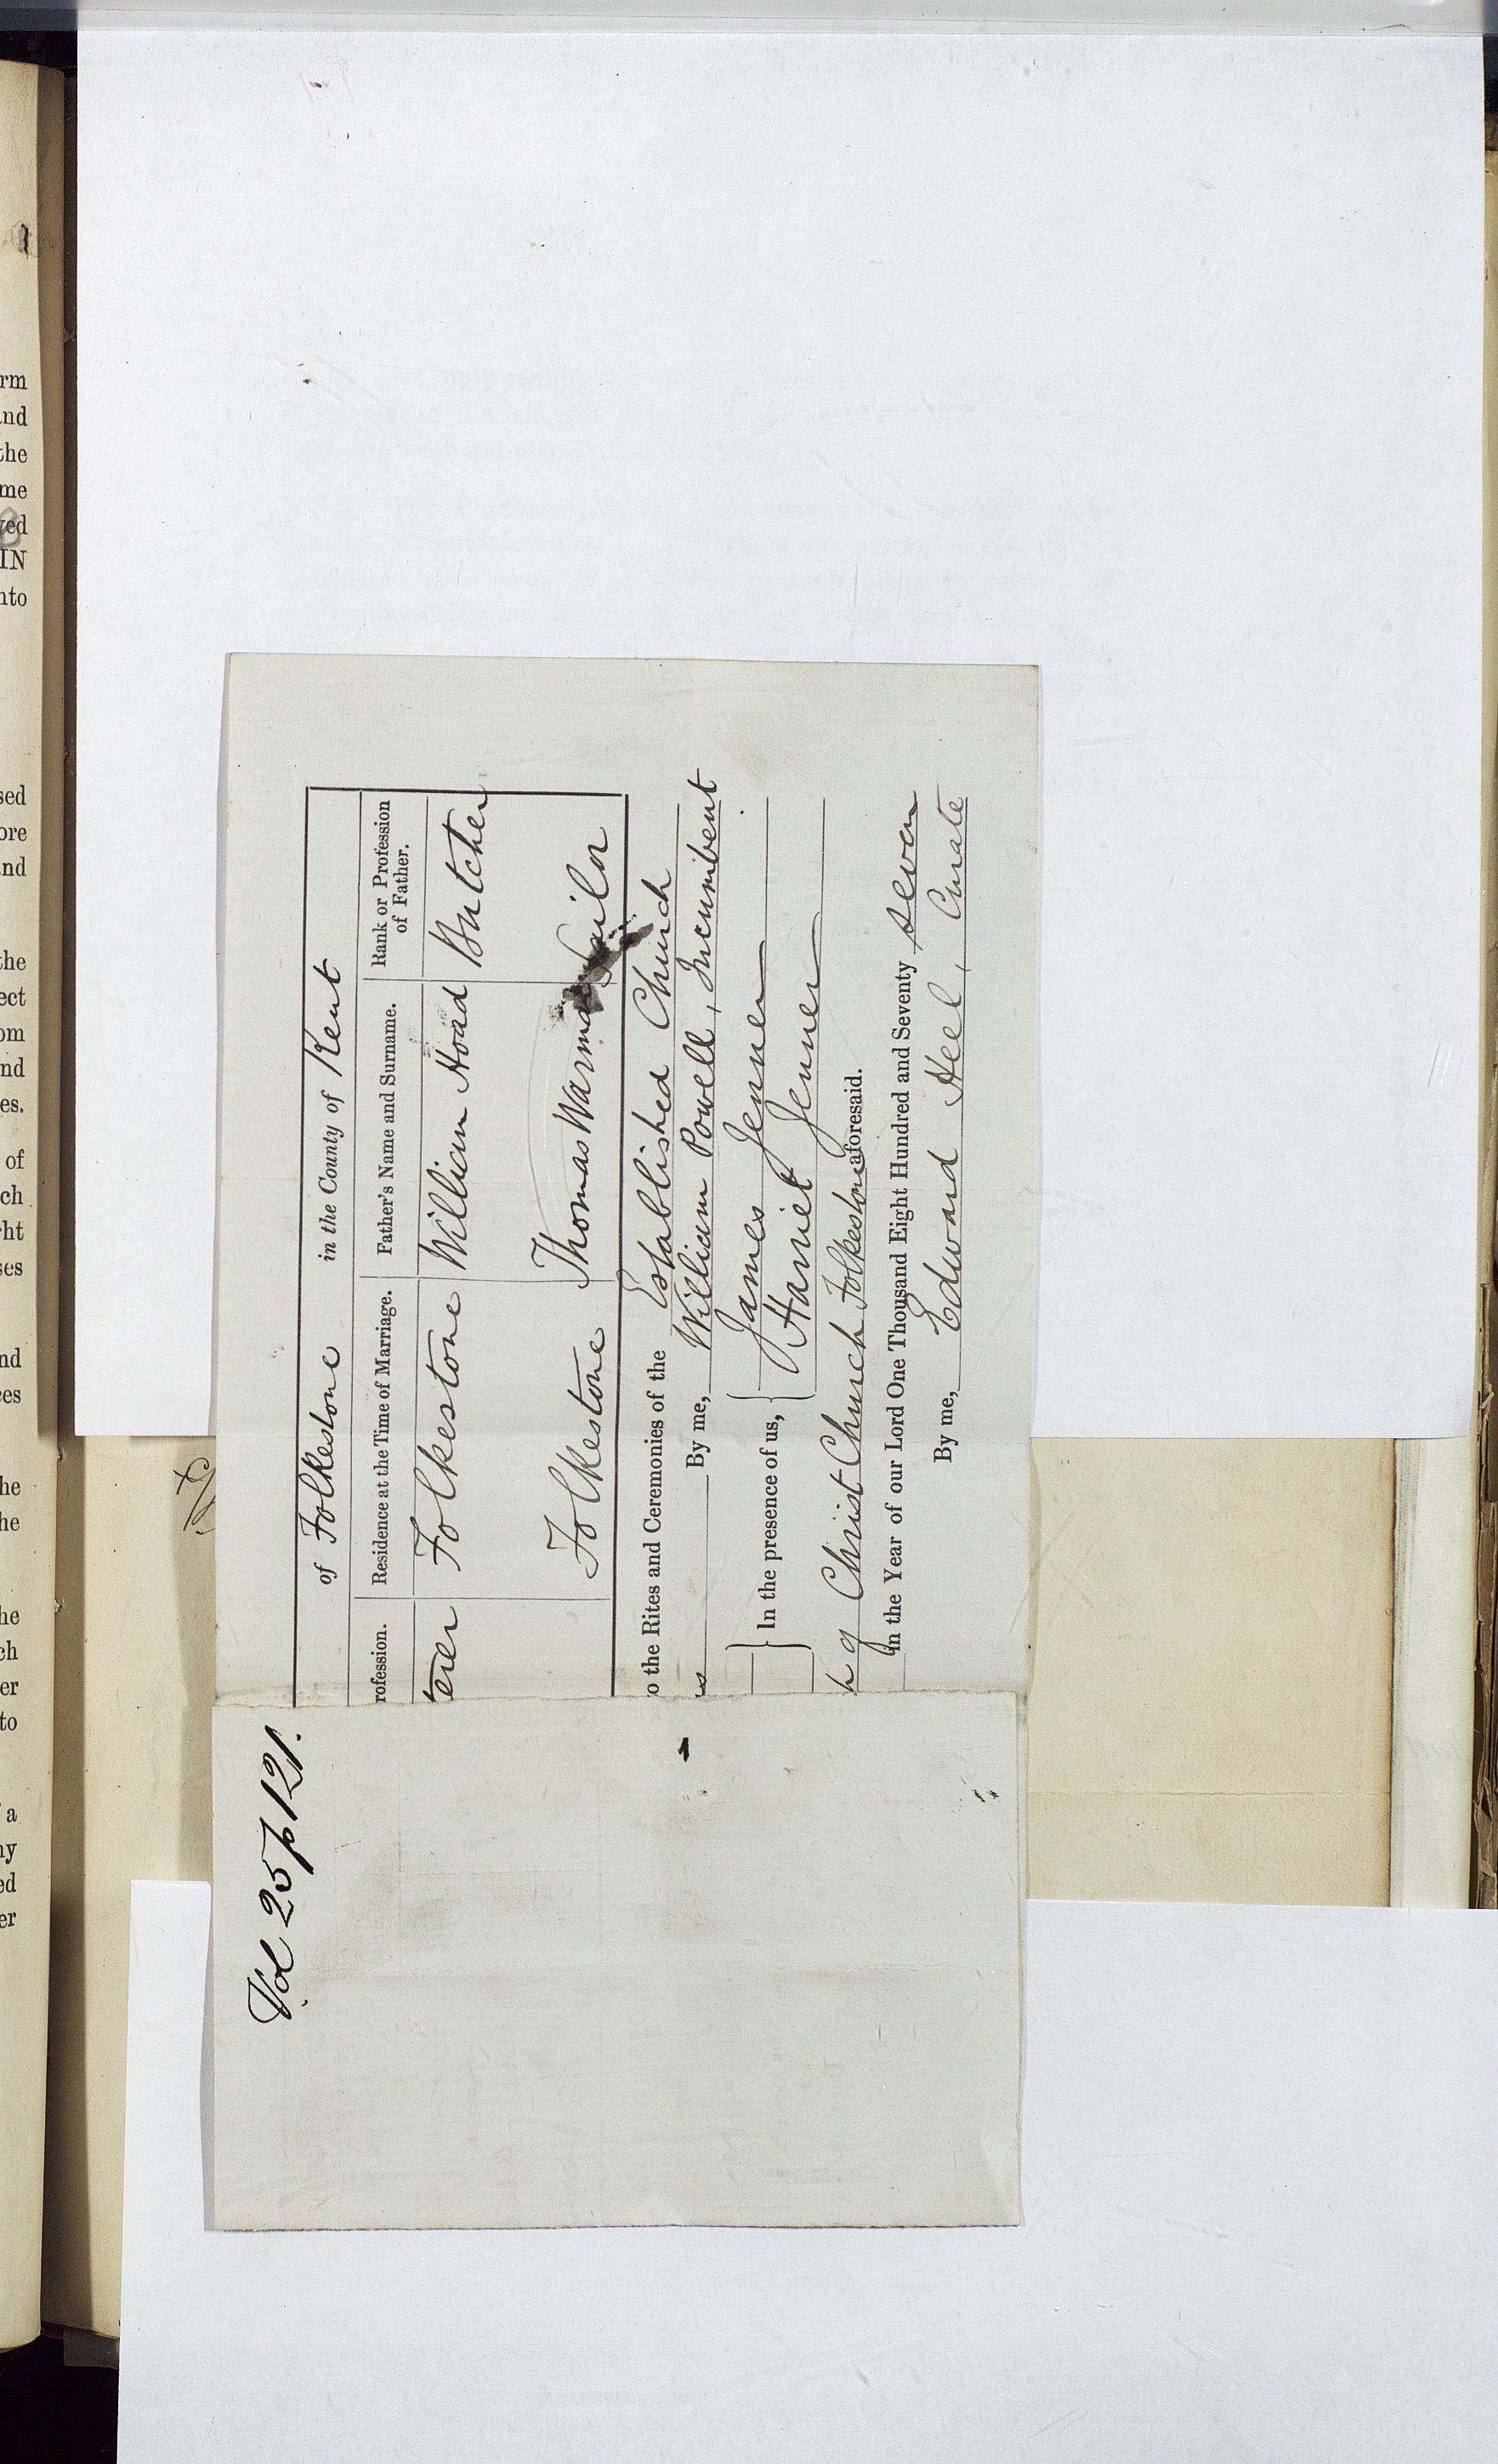 Vol 25 p 121.
of Folkestone in the County of Kent
rofession. Residence at the Time of Marriage. Father's Name and Surname. Rank or Profession
of Father.
terer Folkestone William Hoad Butcher
Folkestone Thomas Warman Sailor
o the Rites and Ceremonies of the Established Church
By me, William Powell, Incumbent
In the presence of us, James Jenner
Harriet Jenner
h of Christ Church Folkestone aforesaid.
in the Year of our Lord One Thousand Eight Hundred and Seventy seven
By me, Edward Heel, Curate
rm
and
the
me
ved
IN
nto
sed
ore
and
the
ect
om
nd
es.
of
ch
ght
ses
nd
ces
he
he
he
ch
er
to
a
ny
ed
er